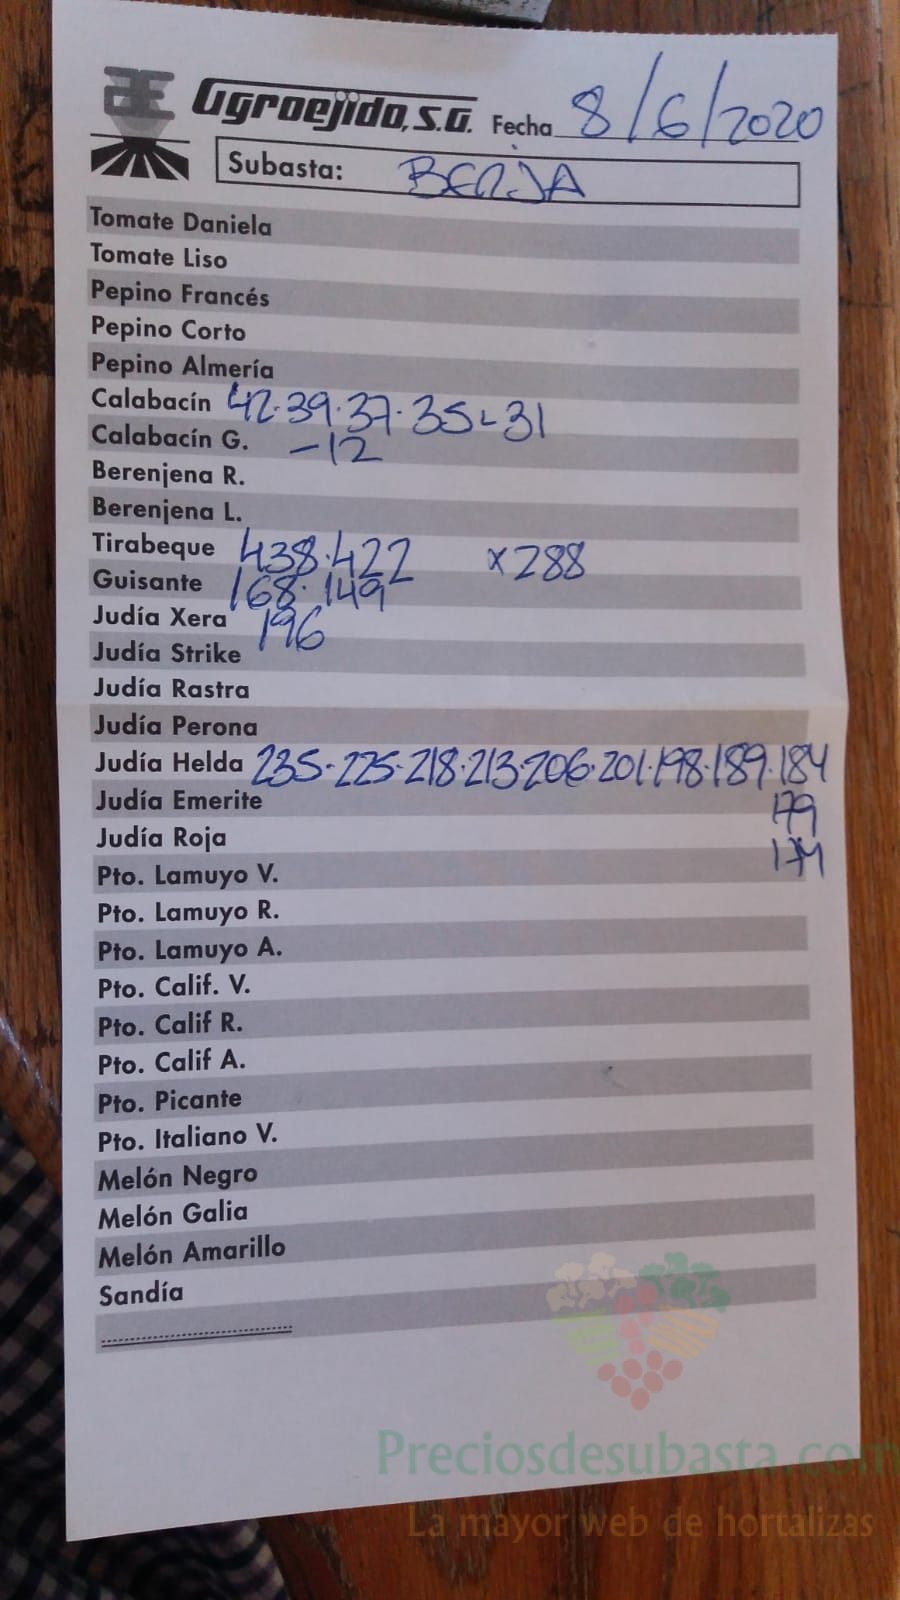 Agroejido, S.A. Fecha 8/6/2020
Subasta: BERJA
Tomate Daniela
Tomate Liso
Pepino Francés
Pepino Corto
Pepino Almería
Calabacín 42·39·37·35-31
Calabacín G. -12
Berenjena R.
Berenjena L.
Tirabeque 438·422 x288
Guisante 168·149
Judía Xera 196
Judía Strike
Judía Rastra
Judía Perona
Judía Helda 235·225·218·213·206·201·198·189·184
Judía Emerite 179
Judía Roja 174
Pto. Lamuyo V.
Pto. Lamuyo R.
Pto. Lamuyo A.
Pto. Calif. V.
Pto. Calif R.
Pto. Calif A.
Pto. Picante
Pto. Italiano V.
Melón Negro
Melón Galia
Melón Amarillo
Sandía
Preciosdesubasta.com
La mayor web de hortalizas